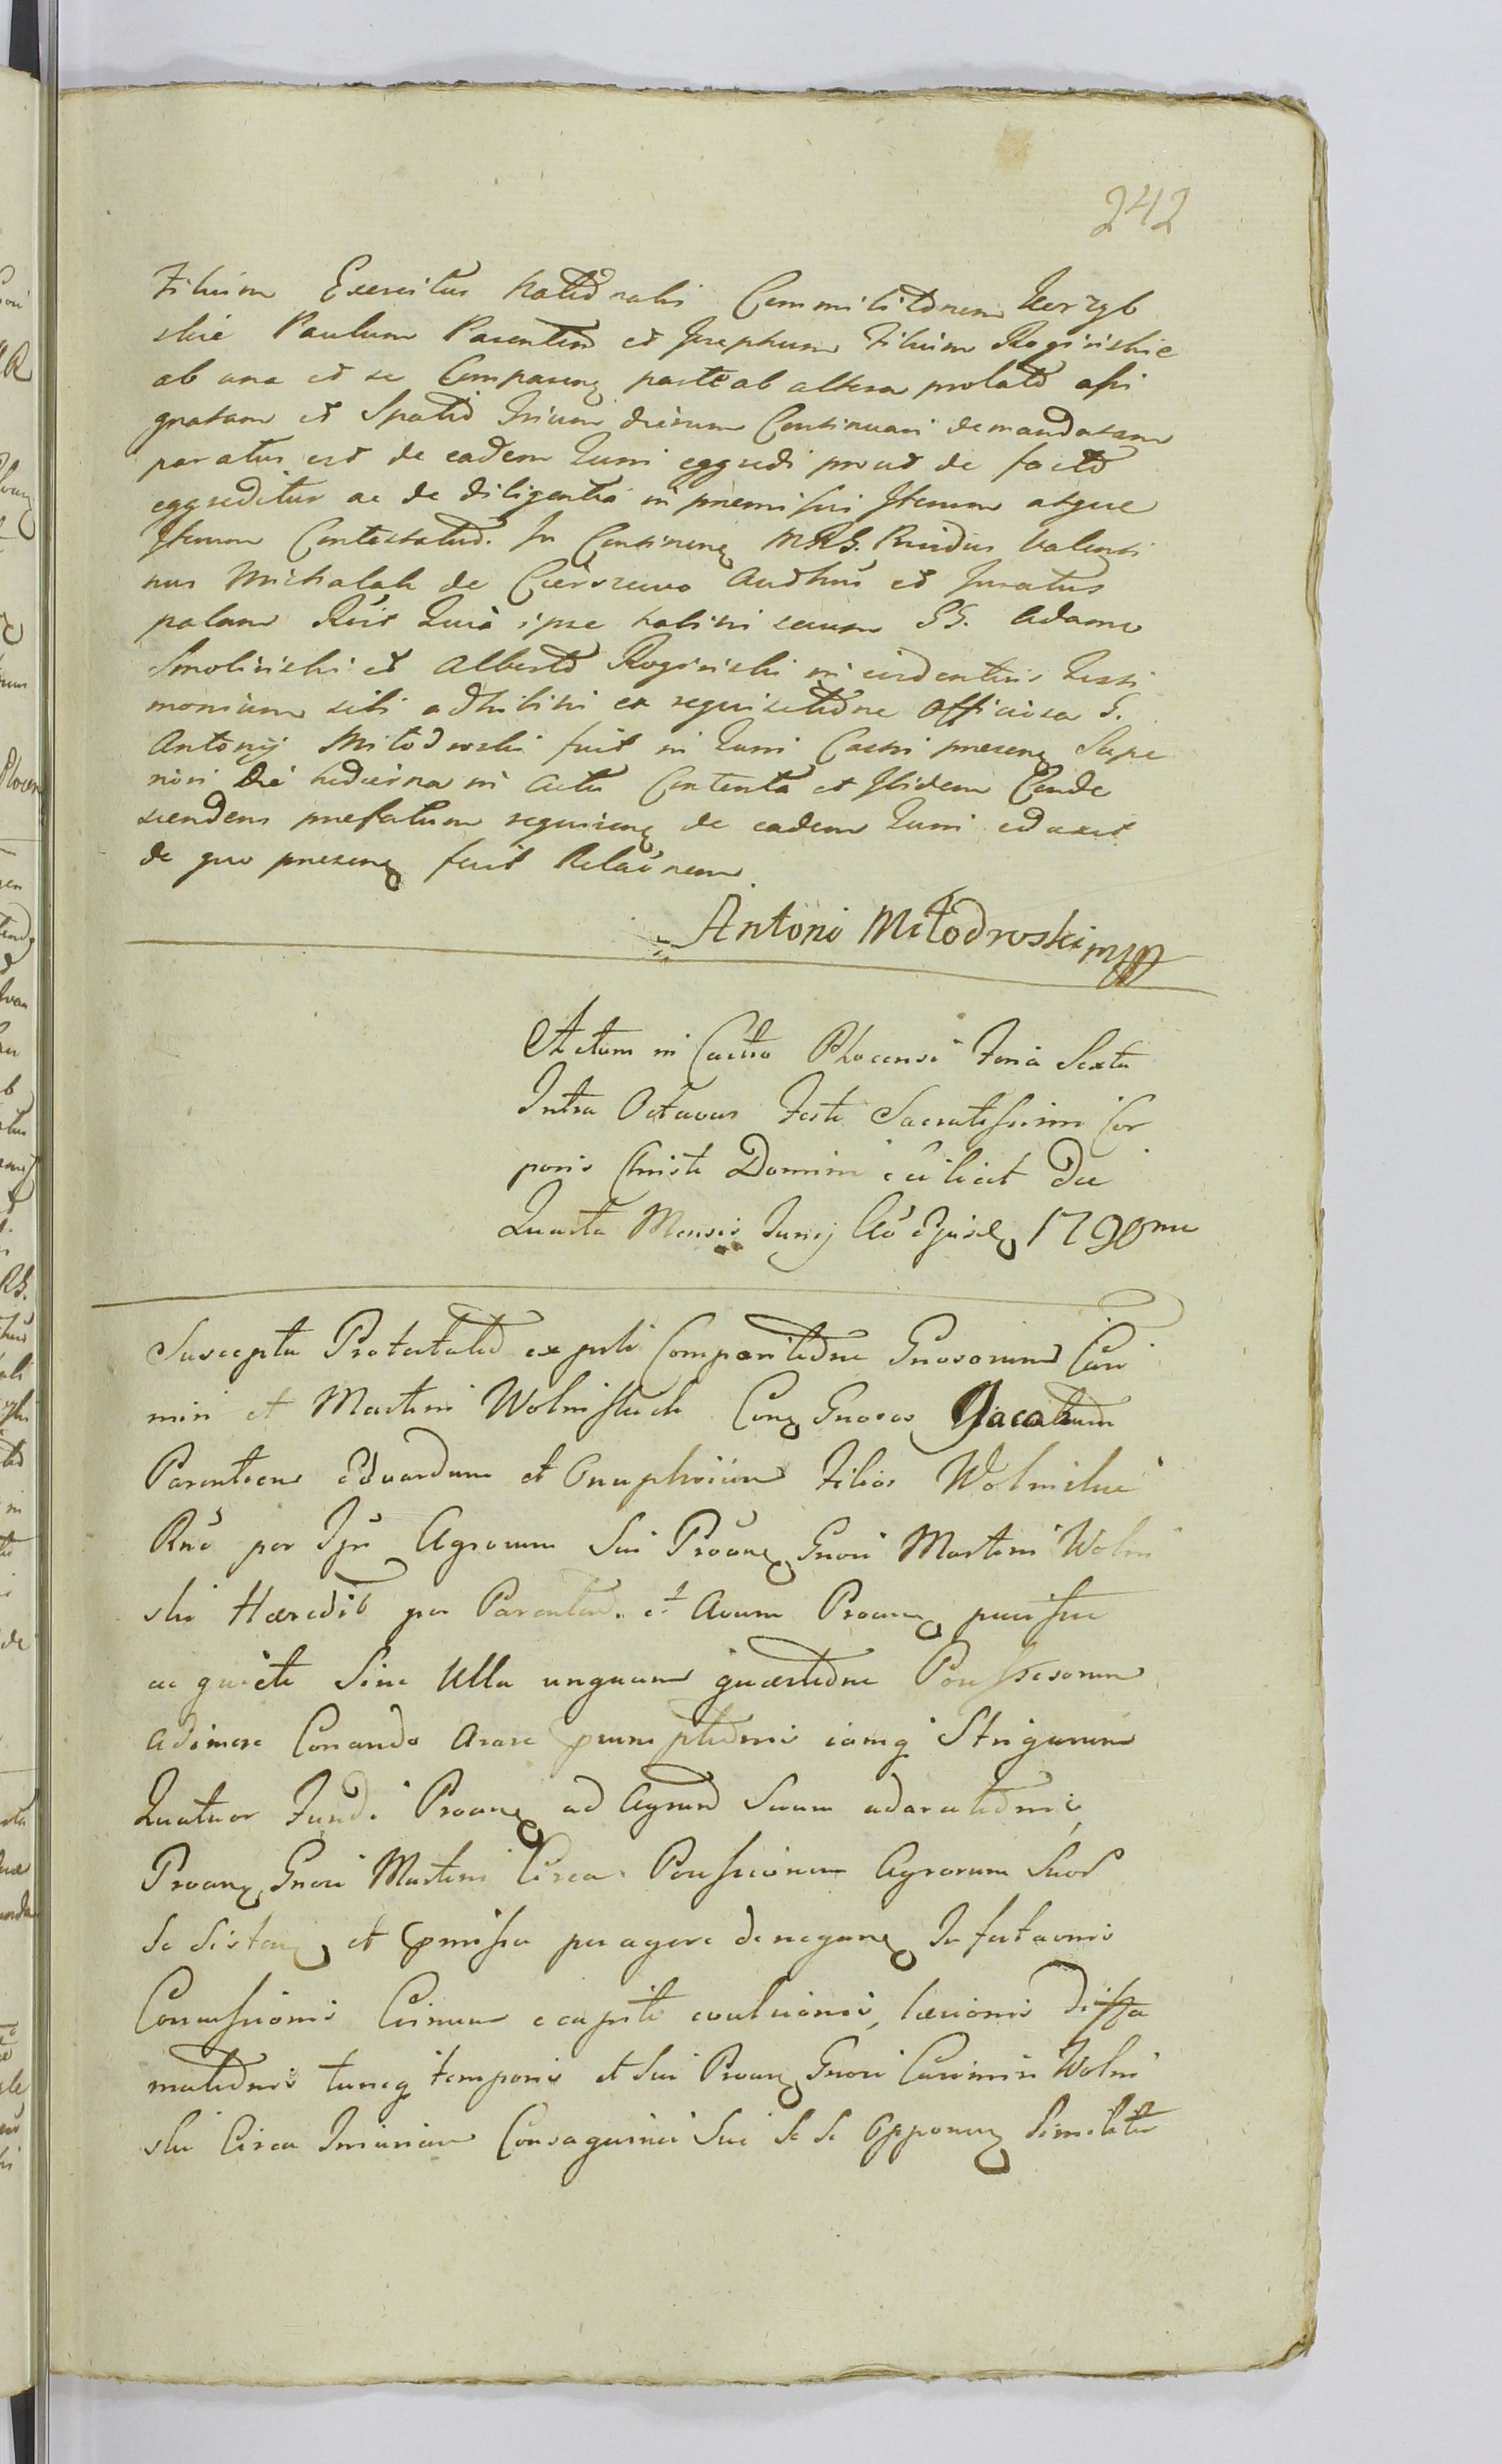 242
Filium Exercitus Nationalis Commilitonem Korzyb
skie Paulum Parentem et Josephum Filium Rogińskie
ab una et se Comparen parte ab altera prolato assi
gnatam et Spatio trium dierum Continuari demandatam
paratus est de eadem Turri eggredi prout de facto
eggreditur ac de diligentia in premissis Iterum atque
Iterum Contestatur. In Continen MRG. Providus Valenti
nus Michalak de Ciérszewo Authus et Juratus
palam Reit Quia ipse habitis secum GG. Adamo
Smoliński et Alberto Rogiński in evidentius testi
monium sibi adhibitis ex requisitione Officiosa G.
Antonij Miłodroski fuit in Turri Castri presen Supe
riori Die hodierna in Actu Contenta et Ibidem Conde
scendens prefatum requiren de eadem Turri eduxit
de quo presen fecit Relaõnem
Antoni Miłodroski mpp
Actum in Castro Plocensi Feria Sexta
Intra Octavas Festi Sacratissimi Cor
poris Christi Domini scilicet Die
Quarta Mensis Junij Aõ Ejusd 1790mo
Suscepta Protestatio ex parte Comparitione Gnosorum Casi
miri et Martini Wolmskich Con Gnosos Jacobum
Parentem Eduardum et Onuphrium Filios Wolmskie
Rnõ per Agrorum Sui Proan Gnosi Martini Wolm
ski Hæredit per Parentem et Avum Proan pacifice
ac quiete Sine Ulla unquam quæstione Possessorum
adimere Conando Arare præsumptionis iamq Strigarum
Quatuor Fundi Proan ad Agrum Suum adarationis,
Proan Gnosi Martini Circa Possessionem Agrorum Suor
Se Sisten et præmissa peragere denegan Infestaõnis
Concussionis Crinium e capite evulsionis, læsionis diffa
mationis tuncq temporis et Sui Proan Gnosi Casimiri Wolm
ski Circa Injuriam Consaguinei Sui Se Se Opponen Similiter